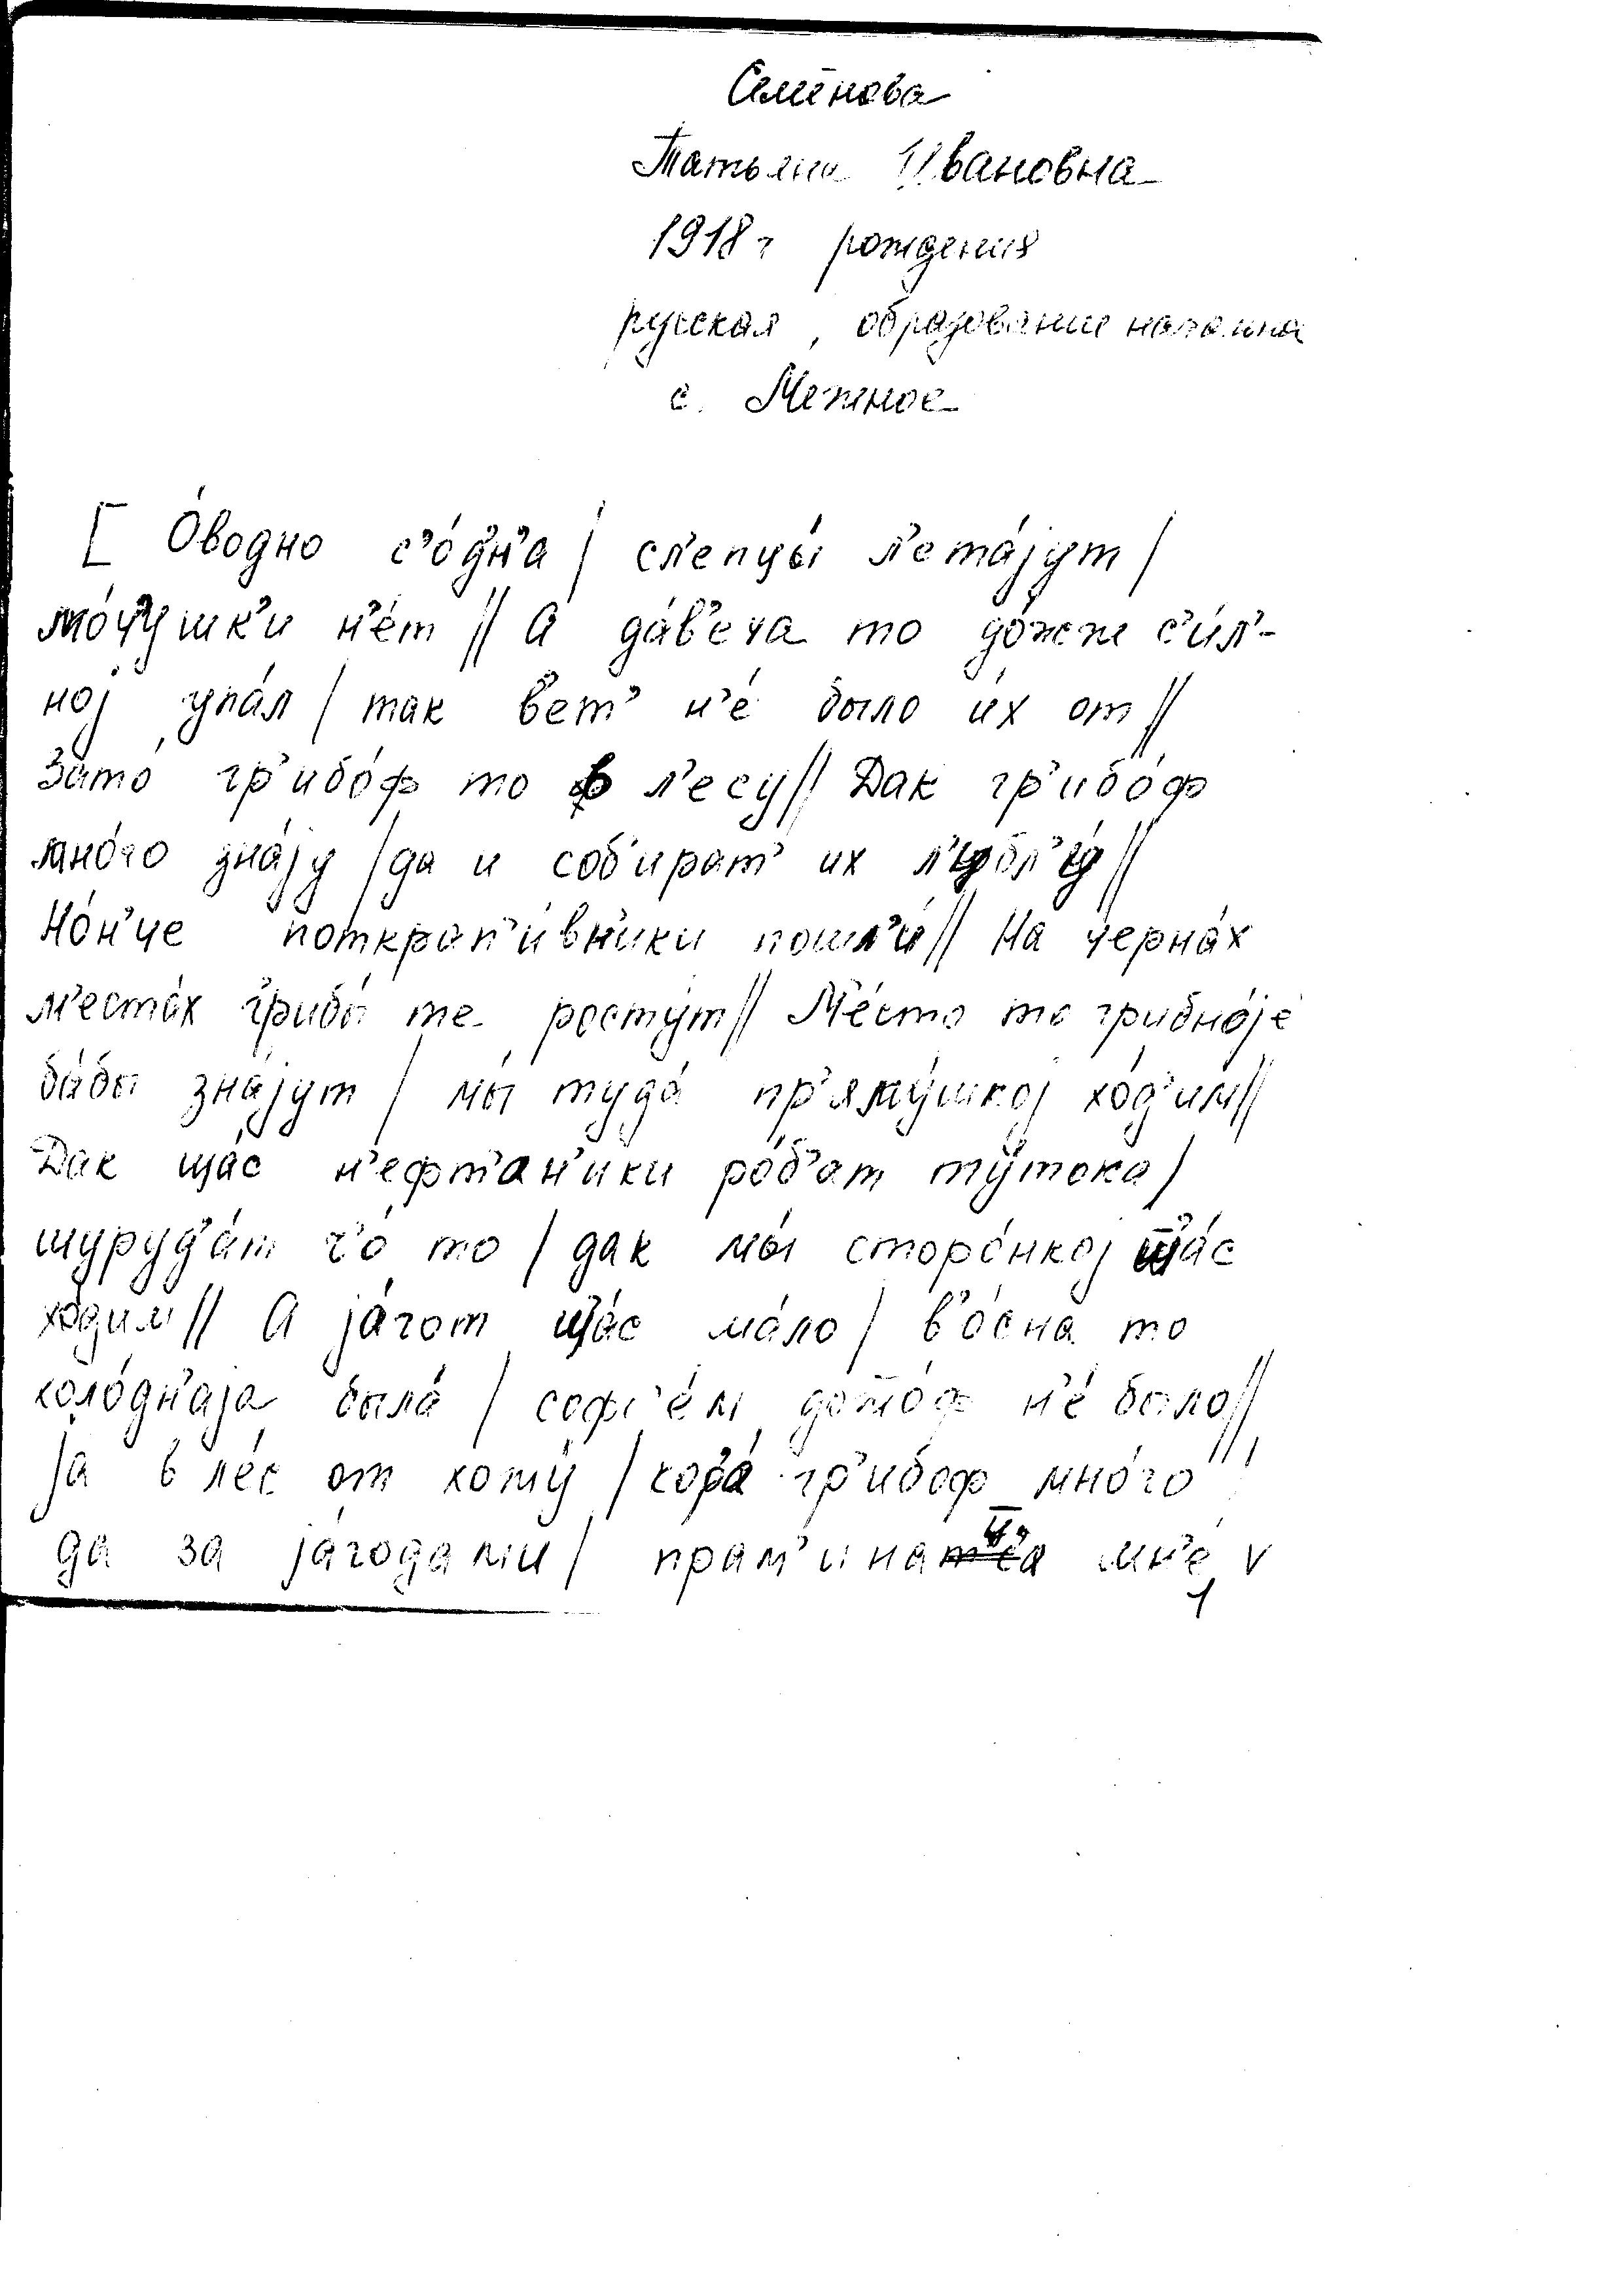 Семёнова
Татьяна Ивановна
1918 г рождения
русская, образование
с. Межное
[ О́водно с’о́д’н’а / сл’епцы́ л’ета́jут /
мо́ч’ушк’и н’е́т // А да́в’еча то до́жж с’и́л’-
ноj упа́л / так в’ет’ н’е́ было и́х от //
Зато́ гр’ибо́ф то в л’есу // Дак гр’ибо́ф
мно́го зна́jу / да и соб’ират’ их л’убл’у́ //
Но́н’че поткрап’и́вн’ики пошл’и́ // На че́рна́х
м’еста́х грибы́ те росту́т // М’е́сто то грибно́jе
ба́бы зна́jут / мы́ туда́ пр’яму́шкоj хо́д’им //
Дак ща́с н’ефт’ан’ики ро́б’ат ту́тока /
шуруд’а́т ч’о́ то / дак мы́ сторо́нкоj ш̅’а́с
хо́дим // А jа́гот ш’а́с ма́ло / в’о́сна то
холо́дн’аjа была́ / софс’е́м н’е́ было //
jа в ле́с от хожу́ / когда́ гр’ибоф мно́го
да за jа́годами / прам’инац̅’а мн’е́ v
1